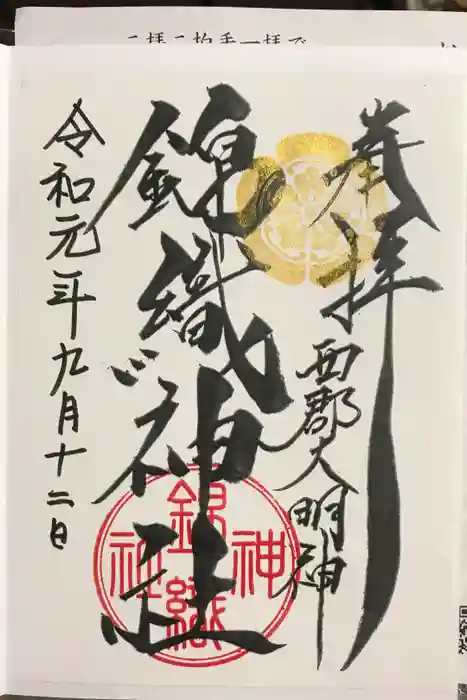 二拝二拍手一拝で
奉拝
西郡大明神
錦織神社
令和元年九月十二日
錦織神社